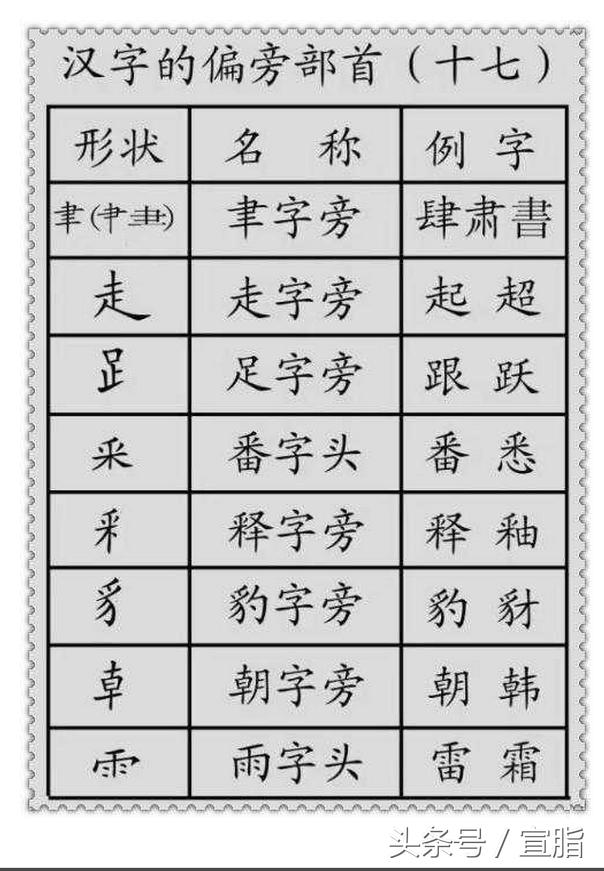 汉字的偏旁部首（十七）
形状 名称 例字
聿(肀⺻) 聿字旁 肆肃書
走 走字旁 起 超
𧾷 足字旁 跟 跃
釆 番字头 番 悉
釆 释字旁 释 釉
豸 豹字旁 豹 豺
龺 朝字旁 朝 韩
⻗ 雨字头 雷 霜
头条号 / 宣脂